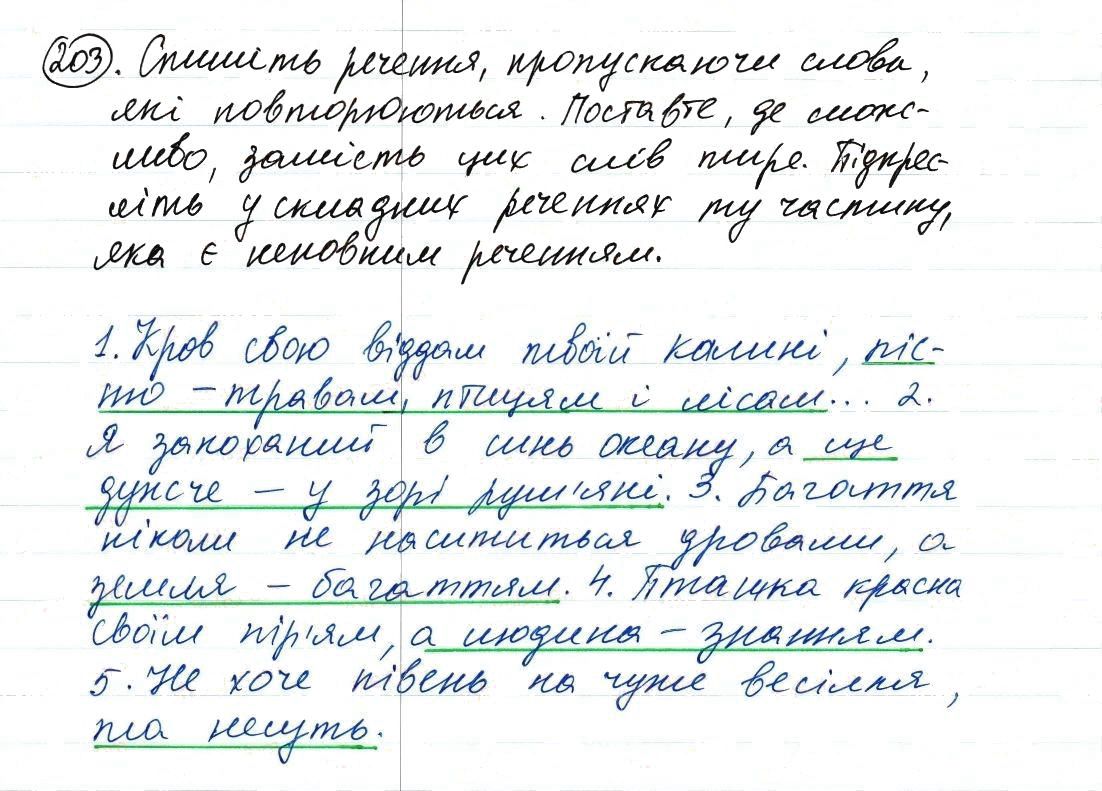 203. Спишіть речення, пропускаючи слова,
які повторюються. Поставте, де мож-
ливо, замість цих слів тире. Підкрес-
літь у складних реченнях ту частину,
яка є неповним реченням.
1. Кров свою віддам твоїй калині, піс-
ню – травам, птицям і лісам... 2.
Я закоханий в синь океану, а ще
дужче – у зорі рум'яні. 3. Багаття
ніколи не насититься дровами, а
земля – багаттям. 4. Пташка красна
своїм пір'ям, а людина – знанням.
5. Не хоче півень на чуже весілля,
та несуть.